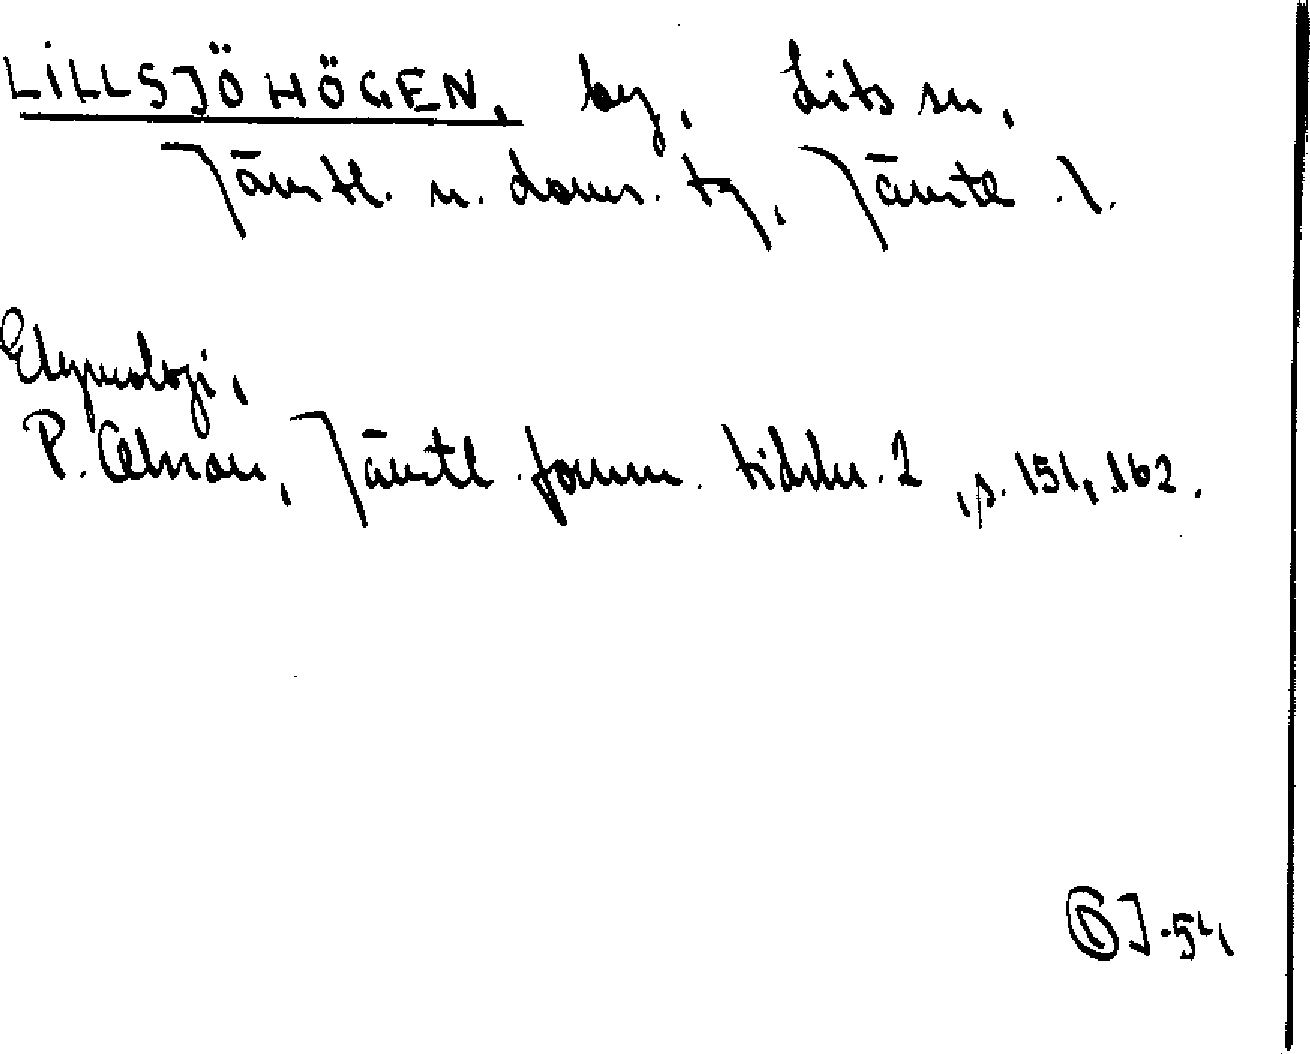 LILLSJÖHÖGEN, by, Lits sn,
Jämtl. n. doms. tg, Jämtl. l.
Etymologi,
P. Olsson, Jämtl. fornm. tidskr. 2, s. 151, 162.
J-54